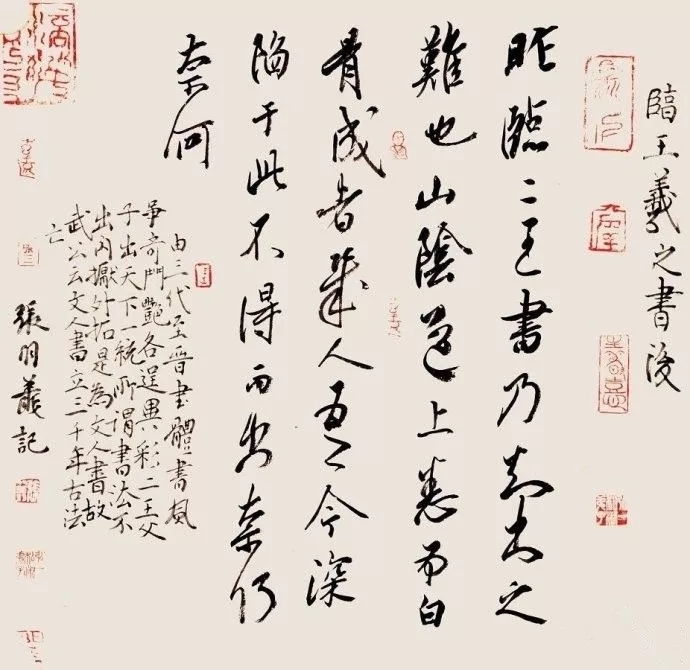 臨王羲之書後
昨臨二王書乃知書之
難也山陰道上悉為白
骨成者幾人吾今深
陷于此不得而出奈何
奈何
由三代至晉書體書風
爭奇鬥艷各逞異彩二王父
子出天下一統所謂書法不
出內擫外拓是為文人書故
武公云文人書立三千年古法
亡
張 記